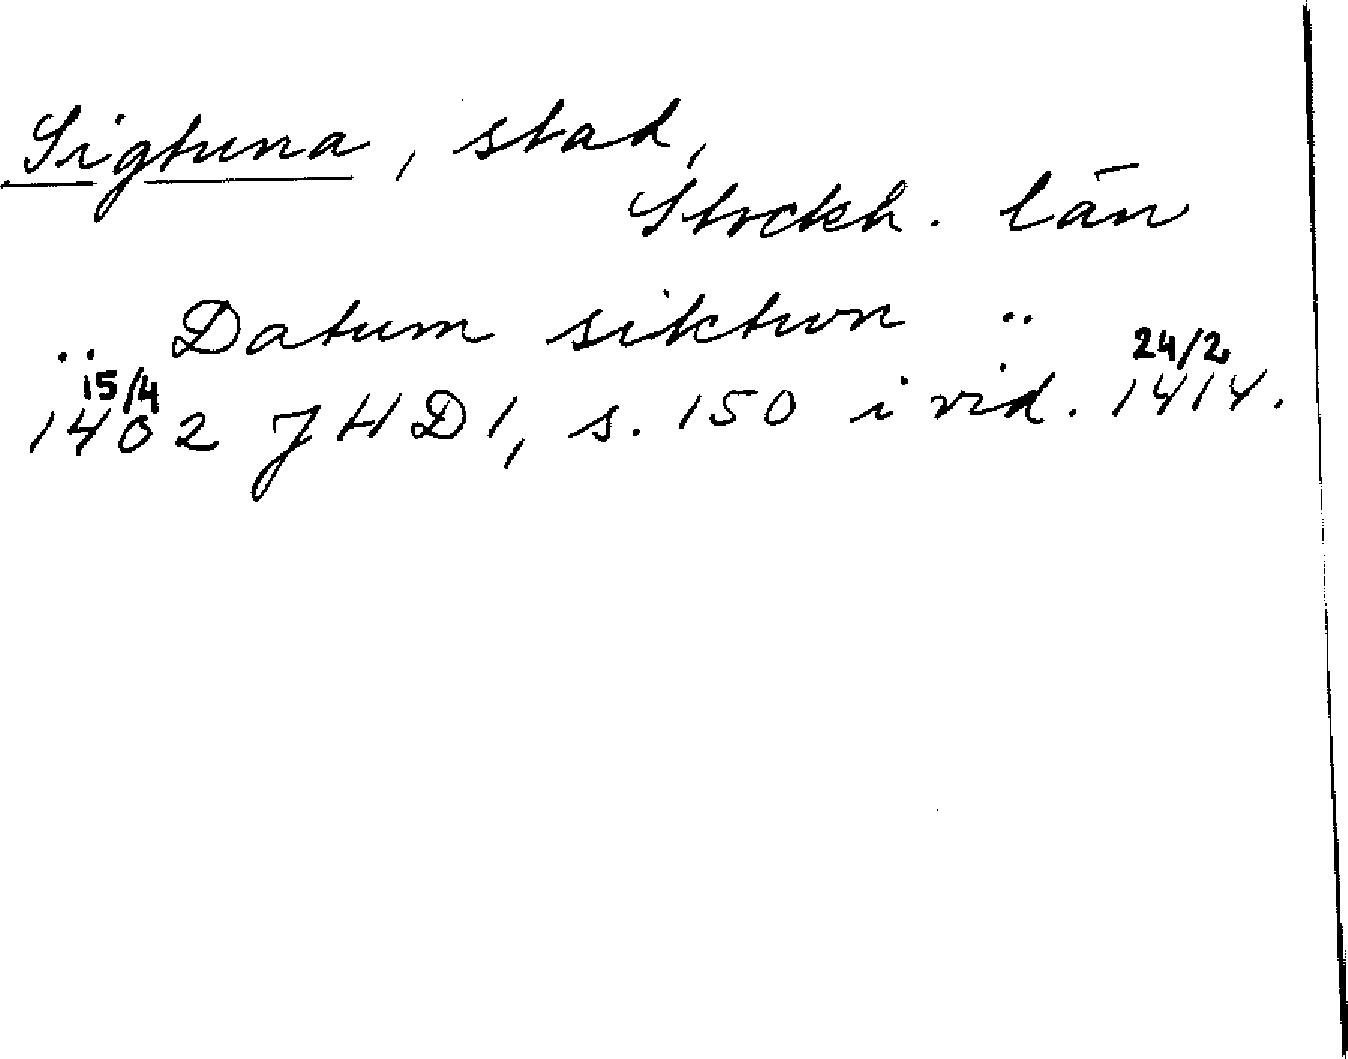 Sigtuna, stad,
Stockh. län
.. Datum siktwn ..
15/4 24/2
1402 JHD 1, s. 150 i vid. 1414.